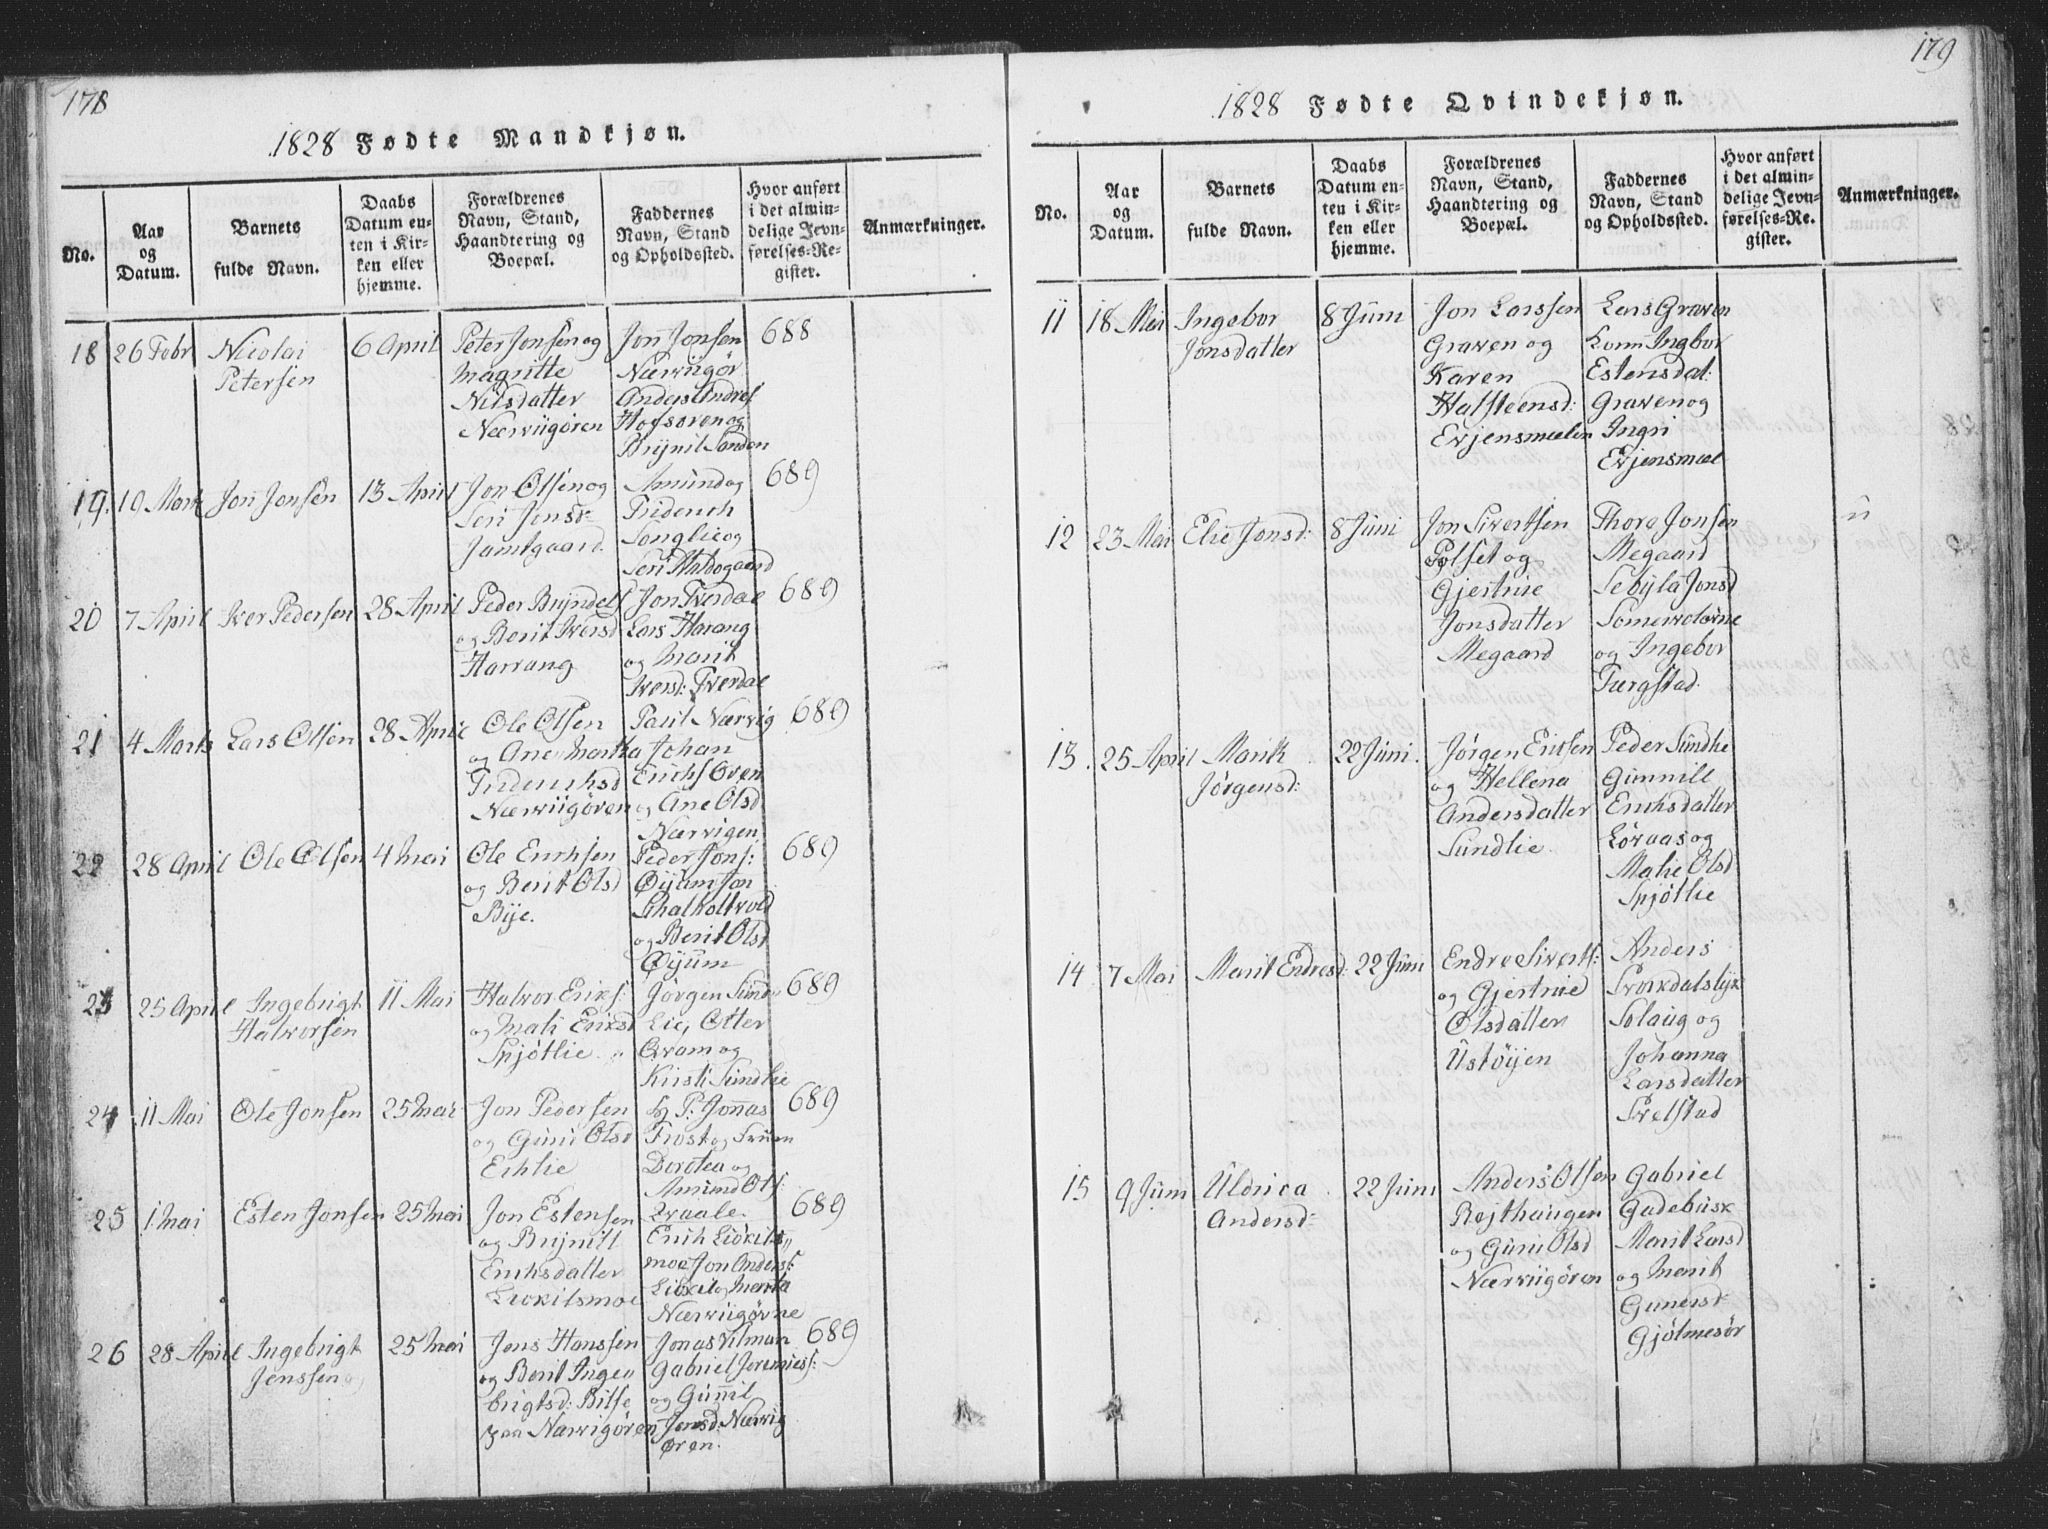 178
1828 Fødte Mandkjøn.
No.
Aar
og
Datum.
Barnets
fulde Navn.
Daabs
Datum en-
ten i Kir-
ken eller
hjemme.
Forældrenes
Navn, Stand,
Haandtering og
Boepæl.
Faddernes
Navn, Stand
og Opholdssted.
Hvor anført
i det almin-
delige Jevn-
førelses-Re-
gister.
Anmærkninger.
18
26 Febr
Nicolai
Petersen
6 April
Peter Jonsen og
Magritte
Nilsdatter
Nærvigøren
Jon Jonsen
Nærvigør
Anders Andres
Hofsøren og
Brynil Sanden
688
19.
10 Mark
Jon Jonsen
13 April
Jon Olsen og
Seri Jonsd:
Jamtgaard.
Amund og
Friderich
Songlie og
Seri Haldogaard
689
20
7 April
Iver Pedersen
28 April
Peder Bryndels
og Berit Iversd
Harrang
Jon Tverdae
Lars Harang
og Marit
Iversd: Tverdae
689
21
4 Marts
Lars Olsen
28 April
Ole Olsen
og Ane Marka
Friderichsd
Nærvigøren
Paul Nærvig
Johan
Erichs Øren
og Ane Olsd
Nærvigen
689
22
28 April
Ole Olsen
4 Mai
Ole Erichsen
og Berit Olsd
Bye.
Peder Jons:
Øyum Jon
Schalholtvold
og Berit Olsd
Øyum
689
23
25 April
Ingebrigt
Halvorsen
11 Mai
Halvor Eriks:
og Mali Eriksd
Spjøtlie
Jørgen Sund-
Lie, Otter
Qvam og
Kirsti Sundlie
689
24
11 Mai
Ole Jonsen
25 Mai
Jon Pedersen
og Guru Olsd
Echlie
Hr P: Jonnas
Frost og Fruen
Dorotea og
Amund Ols:
Qvaale.
689
25
1 Mai
Esten Jonsen
25 Mai
Jon Estensen
og Brynill
Erichsdatter
Liøkilsmoe
Erich Liøkils-
moe Jon Anders:
Liøkil og Marta
Nærvigørne
689
26
28 April
Ingebrigt
Jenssen
25 Mai
Jens Hanssen
og Berit Inge-
brigtsd: Bilse
paa Nærvigøren
Jonas Vilman
Gabriel Jeremiess:
og Gunnil
Jensd: Nærvig
øren.
689
179
1828 Fødte Qvindekjøn.
No.
Aar
og
Datum.
Barnets
fulde Navn.
Daabs
Datum en-
ten i Kir-
ken eller
hjemme.
Forældrenes
Navn, Stand,
Haandtering og
Boepæl.
Faddernes
Navn, Stand
og Opholdssted.
Hvor anført
i det almin-
delige Jevn-
førelses-Re-
gister.
Anmærkninger.
11
18 Mai
Ingebor
Jonsdatter
8 Juni
Jon Larssen
Graven og
Karen
Halsteensd:
Evjensmælen
Lars Graven
Ingbor
Estensdat:
Graven og
Ingri
Evjensmæl
12
23 Mai
Elie Jonsd:
8 Juni
Jon Sivertsen
Polset og
Gjertrue
Jonsdatter
Megaard
Thore Jonsen
Megaard
Sebyla Jonsd
Somerveløvne
og Ingebor
Turgstad.
13
25 April
Marik
Jørgensd:
22 Juni.
Jørgen Ericsen
og Hellena
Andersdatter
Sundlie
Peder Sundlie
Gunnill
Erichsdatter
Løraas og
Malie Olsd
Spjøtlie
14
7 Mai
Marit Endresd:
22 Juni
Endre Siverts:
og Gjertrue
Olsdatter
Ustøyen
Anders
Svorkdalslyk
Solaug og
Johanna
Larsdatter
Svelstad
15
9 Juni
Uldrica
Andersd:
22 Juni
Anders Olsen
Rejthaugen
og Guru Olsd
Nærvigøren
Gabriel
Gadebusk
Marit Larsd
og Marit
Gunersd:
Gjølmesør